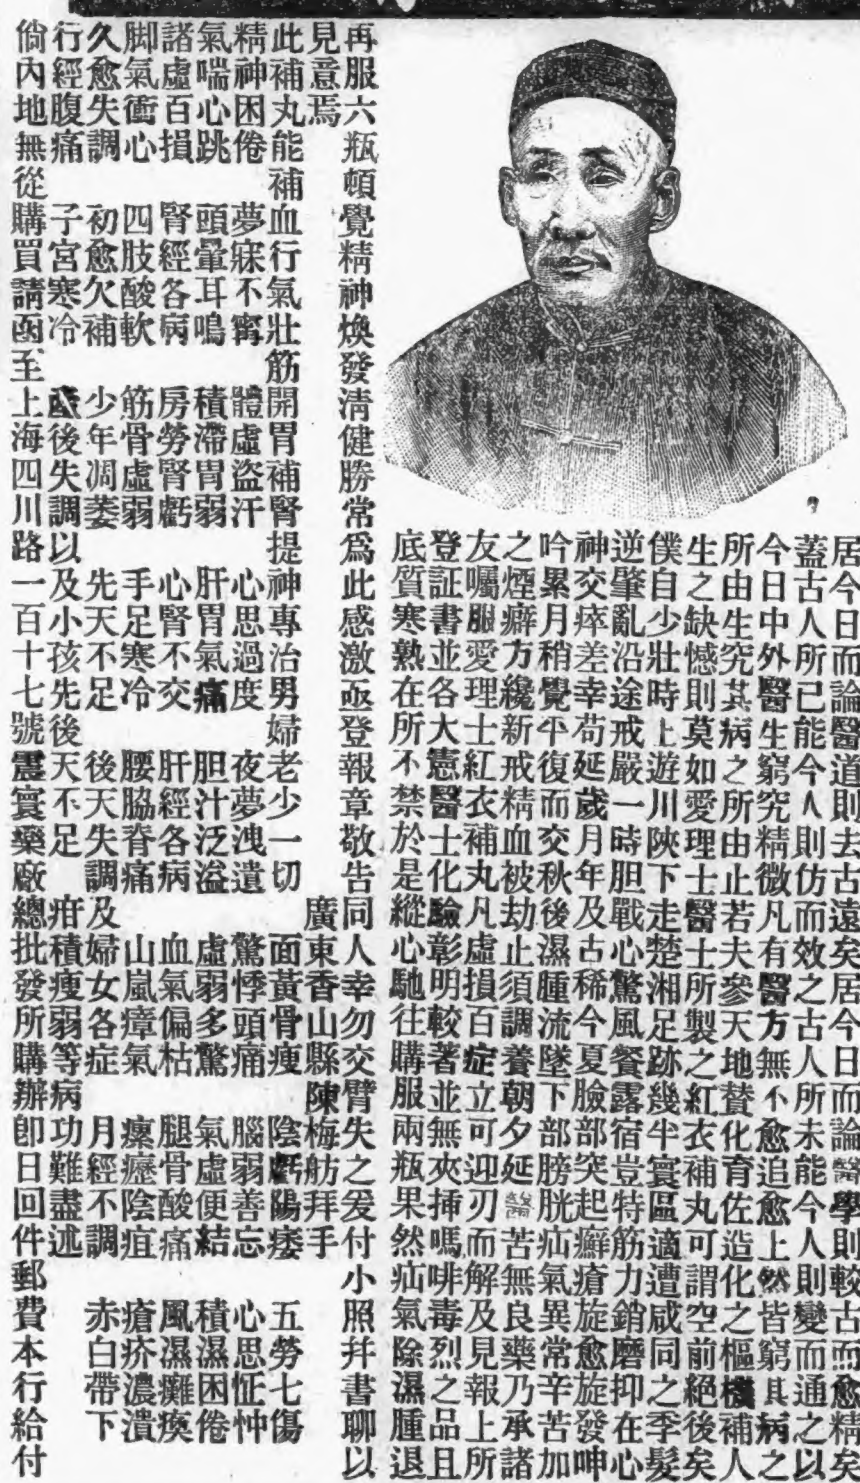 居今日而論醫道則去古遠矣居今日而論醫學則較古而愈精矣
蓋古人所已能今人則仿而效之古人所未能今人則變而通之以
今日中外醫生窮究精微凡有醫方無不愈追愈上然皆窮其病之
所由生究其病之所由止若夫參天地贊化育佐造化之樞機補人
生之缺憾則莫如愛理士醫士所製之紅衣補丸可謂空前絕後矣
僕自少壯時上遊川陝下走楚湘足跡幾半寰區適遭咸同之季髮
逆肇亂沿途戒嚴一時胆戰心驚風餐露宿豈特筋力銷磨抑在心
神交瘁差幸苟延歲月年及古稀今夏臉部突起癬瘡旋愈旋發呻
吟累月稍覺平復而交秋後濕腫流墜下部膀胱疝氣異常辛苦加
之煙癖方纔新戒精血被劫止須調養朝夕延醫苦無良藥乃承諸
友囑服愛理士紅衣補丸凡虛損百症立可迎刃而解及見報上所
登証書並各大憲醫士化驗彰明較著並無夾揷嗎啡毒烈之品且
底質寒熱在所不禁於是縱心馳往購服兩瓶果然疝氣除濕腫退
再服六瓶頓覺精神煥發清健勝常爲此感激亟登報章敬告同人幸勿交臂失之爰付小照幷書聊以
見意焉 廣東香山縣陳梅舫拜手
此補丸能補血行氣壯筋開胃補腎提神專治男婦老少一切 面黃骨瘦 陰虧陽痿 五勞七傷
精神困倦 夢寐不寗 體虛盜汗 心思過度 夜夢洩遺 驚悸頭痛 腦弱善忘 心思怔忡
氣喘心跳 頭暈耳鳴 積滯胃弱 肝胃氣痛 胆汁泛溢 虛弱多驚 氣虛便結 積濕困倦
諸虛百損 腎經各病 房勞腎虧 心腎不交 肝經各病 血氣偏枯 腿骨酸痛 風濕癱瘓
脚氣衝心 四肢酸軟 筋骨虛弱 手足寒冷 腰脇脊痛 山嵐瘴氣 瘰癧陰疽 瘡疥濃潰
久愈失調 初愈欠補 少年凋萎 先天不足 後天失調及婦女各症 月經不調 赤白帶下
行經腹痛 子宮寒冷 產後失調以及小孩先後天不足 疳積瘦弱等病功難盡述
倘內地無從購買請函至上海四川路一百十七號震寰藥廠總批發所購辦卽日回件郵費本行給付